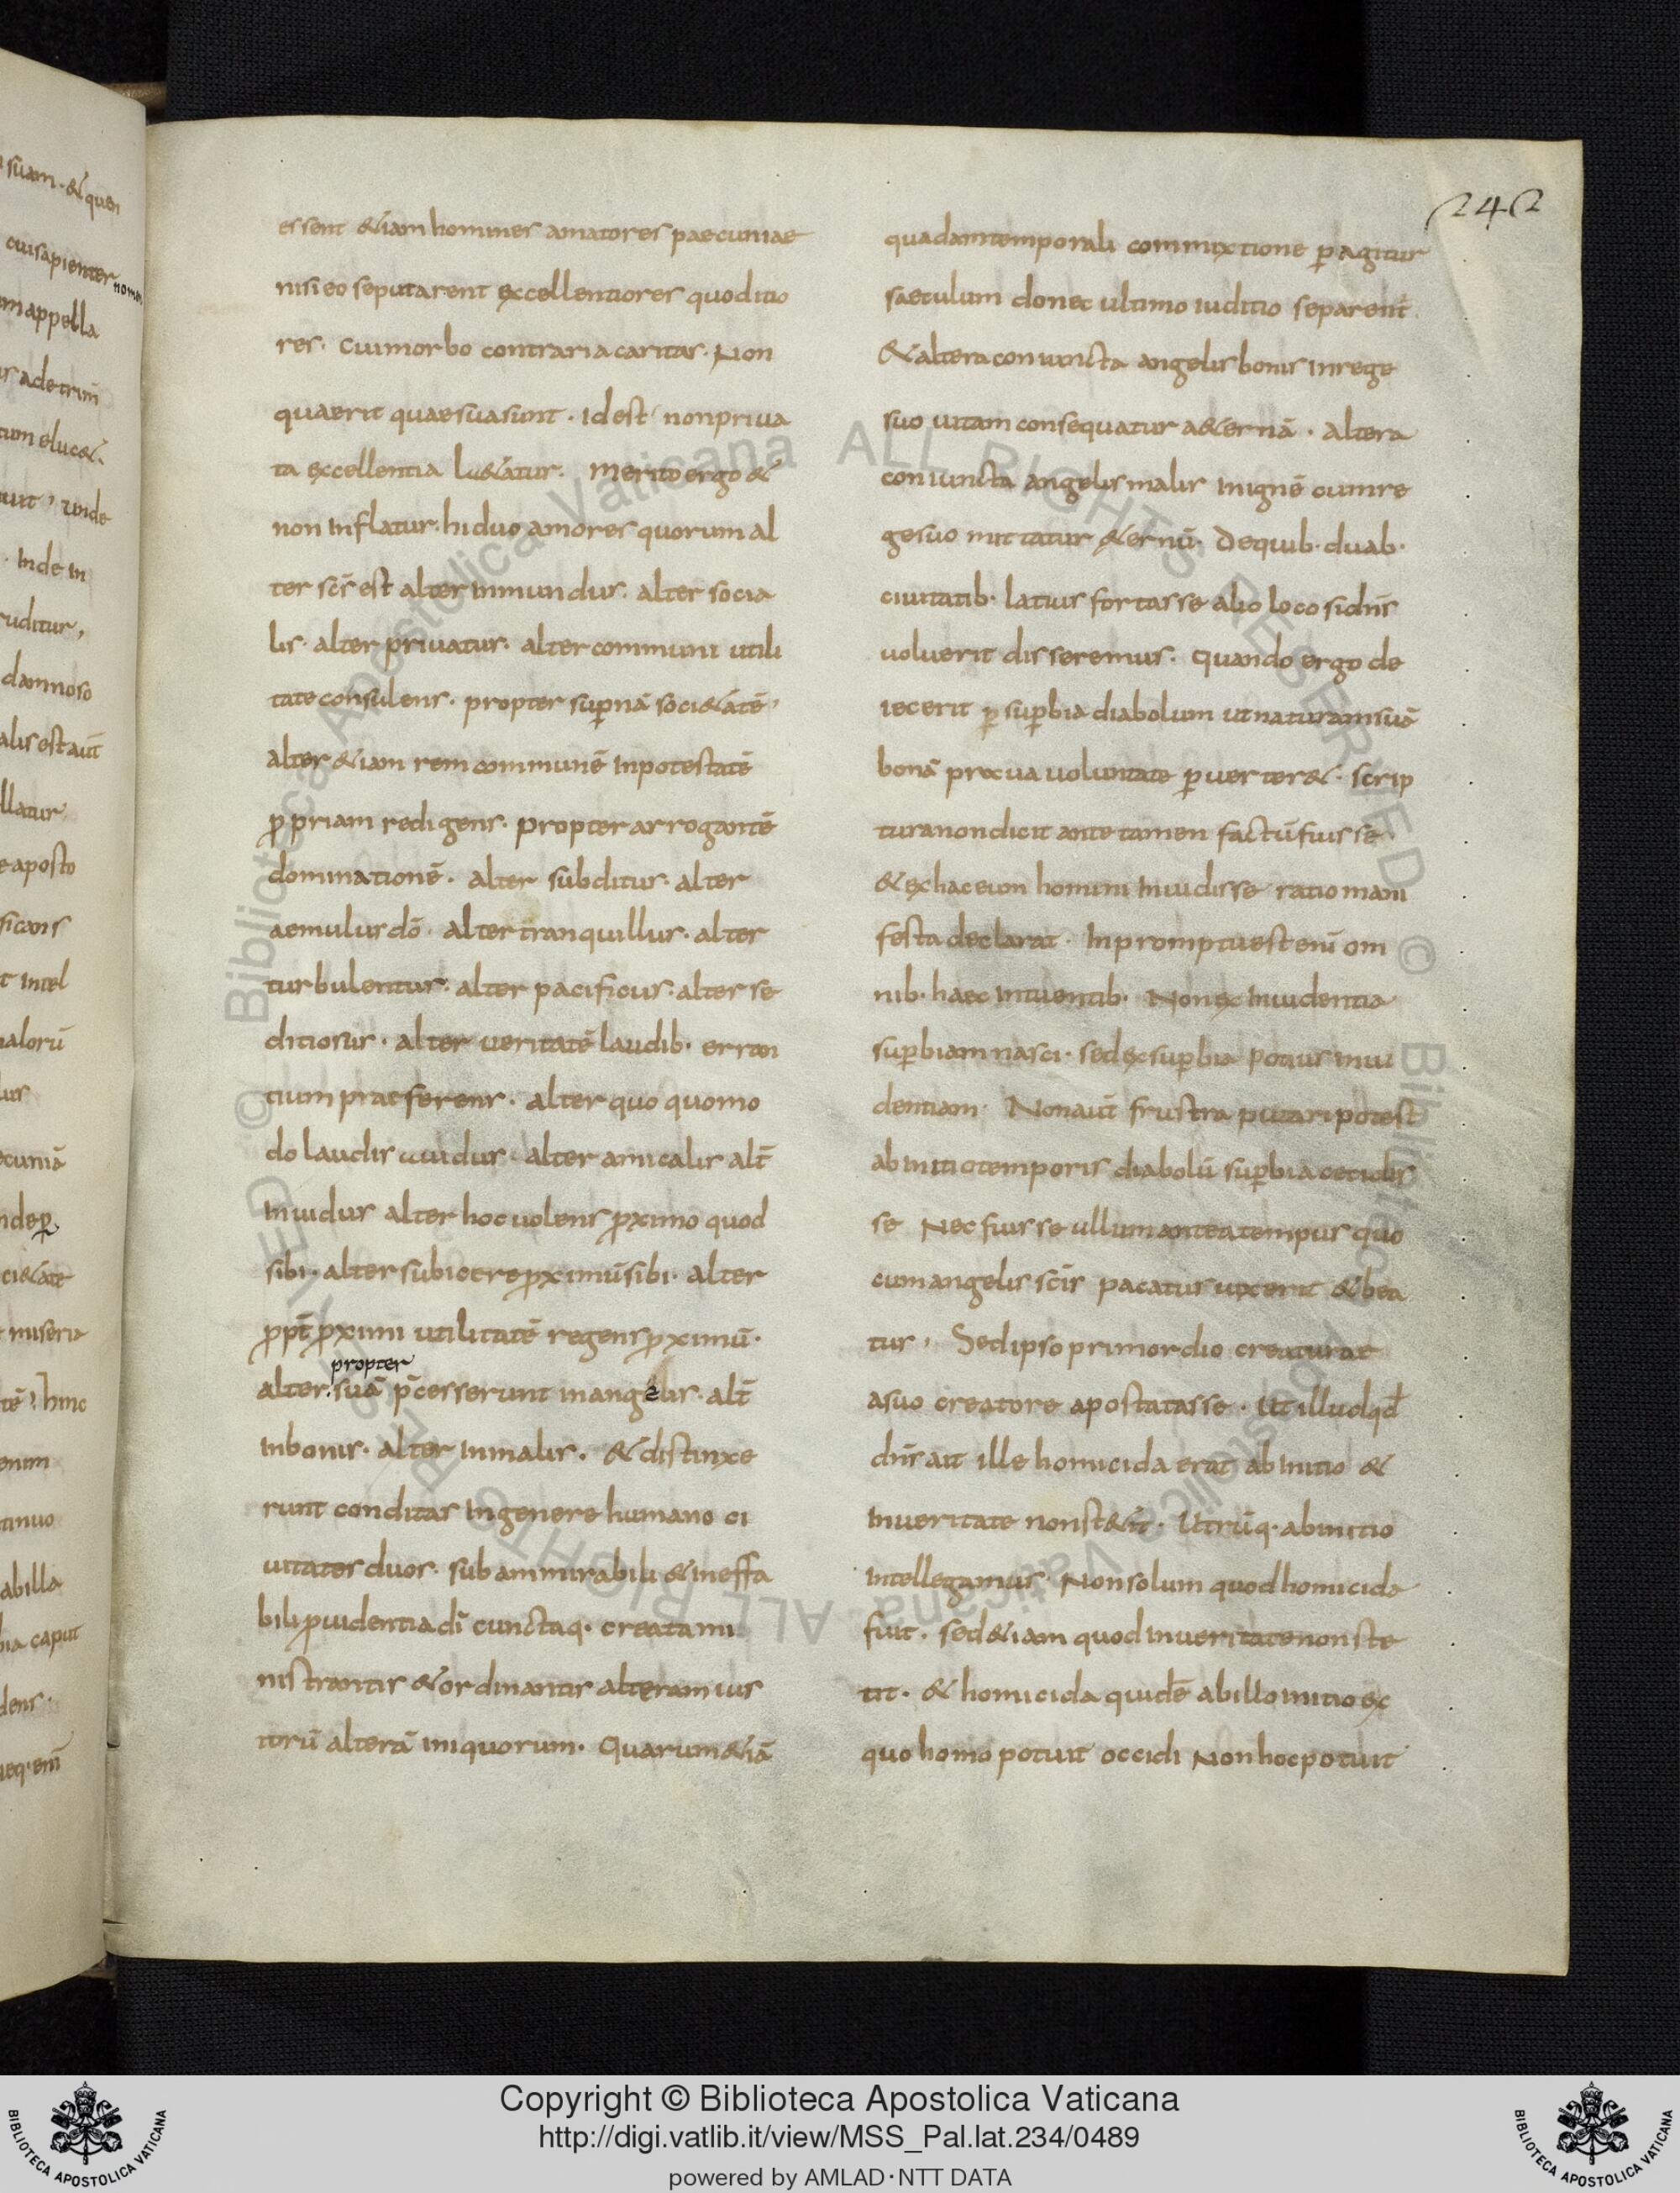 242
essent &iam homines amatores paecuniae
nisi eo se putarent excellentiores quo ditio
res. Cui morbo contraria caritas. Non
quaerit quae sua sunt. id est non priua
ta excellentia l&atur. Merito ergo &
non inflatur. hi duo amores quorum al
ter scs est alter inmundus. alter socia
lis. alter priuatus. alter communi utili
tate consulens. propter supnā soci&atē,
alter &iam rem communē in potestatē
ppriam redigens. propter arrogantē
dominationē. alter subditus. alter
aemulus dō. alter tranquillus. alter
turbulentus. alter pacificus. alter se
ditiosus. alter ueritatē laudib. erran
tium praeferens. alter quo quomo
do laudis auidus. alter amicalis alt̄
inuidus alter hoc uolens pximo quod
sibi. alter subicere pximū sibi. alter
ppt̄ pximi utilitatē regens pximū.
propter
alter. suā p̄cesserunt in angelis. alt̄
in bonis. alter in malis. & distinxe
runt conditas in genere humano ci
uitates duos. sub ammirabili & ineffa
bili puidentia dī cunctaq. creata mi
nistrantis & ordinantis alteram ius
torū alterā iniquorum. Quarum &iā
quadam temporali commixtione pagitur
saeculum donec ultimo iuditio separent̄.
& altera coniuncta angelis bonis in rege
suo uitam consequatur a&ernā. altera
coniuncta angelis malis in ignē cum re
ge suo mittatur &ernū. De quib. duab.
ciuitatib. latius fortasse alio loco si dn̄s
uoluerit disseremus. Quando ergo de
iecerit p supbia diabolum ut naturam suā
bonā praua uoluntate puerter&. scrip
tura non dicit ante tamen factū fuisse.
& ex hac eum homini inuidisse ratio mani
festa declarat. In promptu est enī om
nib. haec intuentib. Non ex inuidentia
supbiam nasci. sed ex supbia potius inui
dentiam. Non aut̄ frustra putari potest
ab initio temporis diabolū supbia cecidis
se Nec fuisse ullum antea tempus quo
cum angelis sc̄is pacatus uixerit & bea
tus, Sed ipso primordio creaturae
a suo creatore apostatasse. Ut illud qd̄
dn̄s ait ille homicida erat ab initio &
in ueritate non st&it. Utrūq. ab initio
intellegamus. Non solum quod homicida
fuit. sed &iam quod in ueritate non ste
tit. & homicida quidē ab illo initio ex
quo homo potuit occidi Non hoc potuit
Copyright © Biblioteca Apostolica Vaticana
http://digi.vatlib.it/view/MSS_Pal.lat.234/0489
powered by AMLAD·NTT DATA
BIBLIOTECA APOSTOLICA VATICANA
BIBLIOTECA APOSTOLICA VATICANA